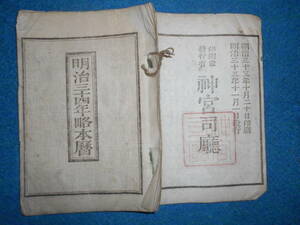 明治三十四年略本暦
明治三十三年十月二十日印刷
明治三十三年十一月一日發行
神宮司廳